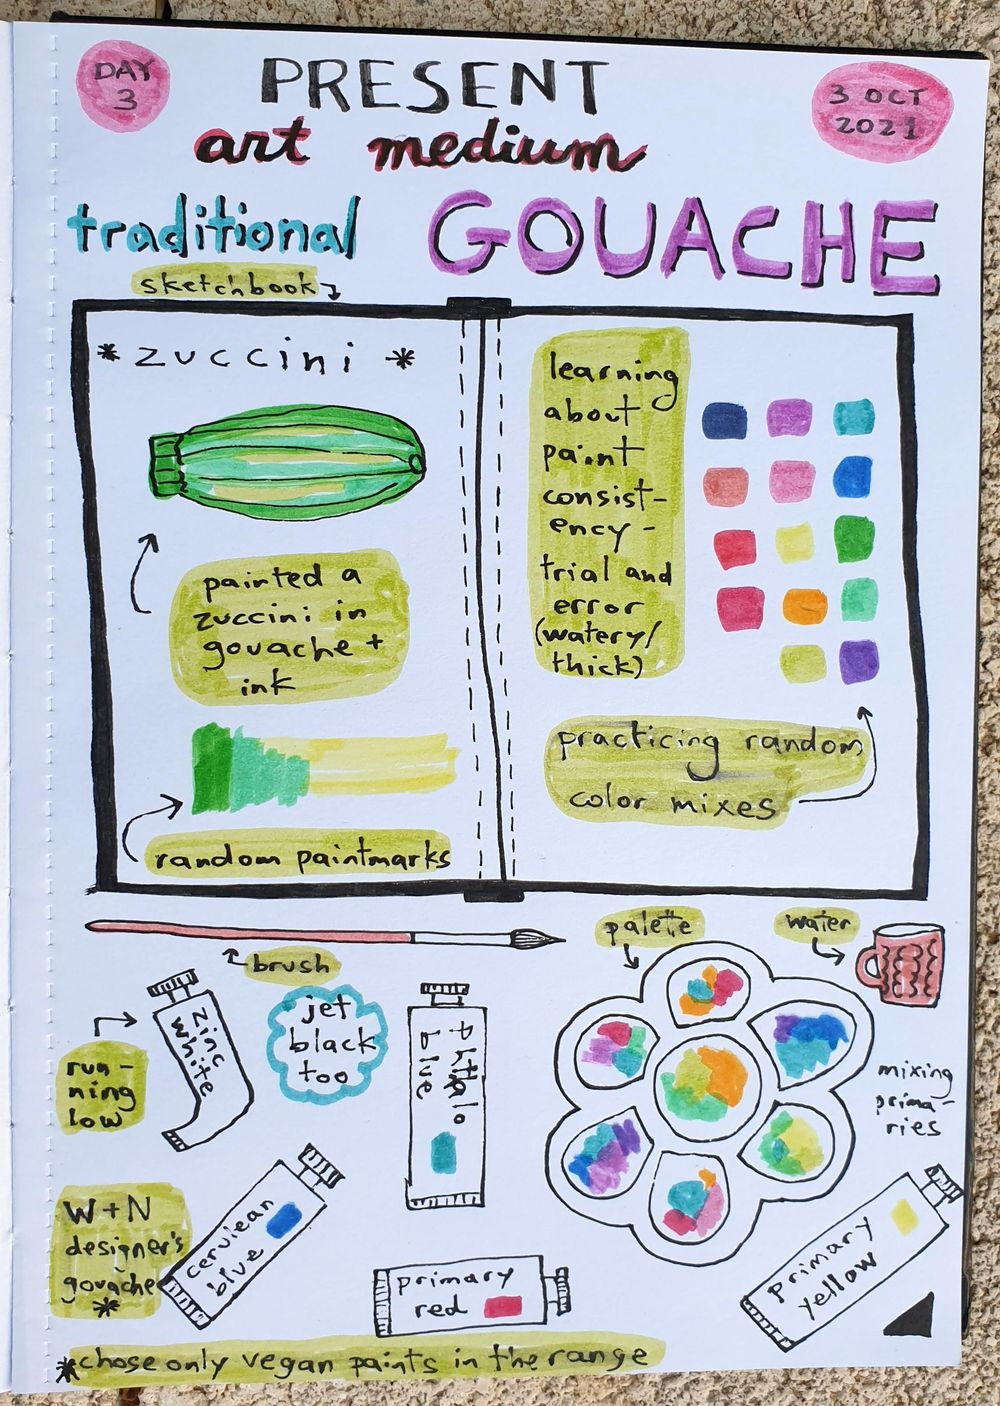 DAY
3
PRESENT
art medium
3 OCT
2021
traditional GOUACHE
sketchbook
* zuccini *
painted a
zuccini in
gouache +
ink
random paintmarks
learning
about
paint
consist-
ency -
trial and
error
(watery/
thick)
practicing random
color mixes
brush
palette
water
run-
ning
low
zinc
white
jet
black
too
Phthalo
blue
mixing
prima-
ries
W+N
designer's
gouache
*
cerulean
blue
primary
red
primary
yellow
*chose only vegan paints in the range